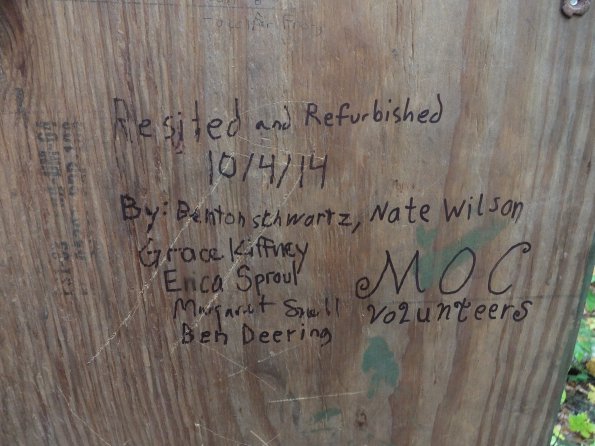 Resited and Refurbished
10/4/14
By: Benton schwartz, Nate Wilson
Grace Kiffney
Erica Sproul
Margaret Snell
Ben Deering
MOC
volunteers